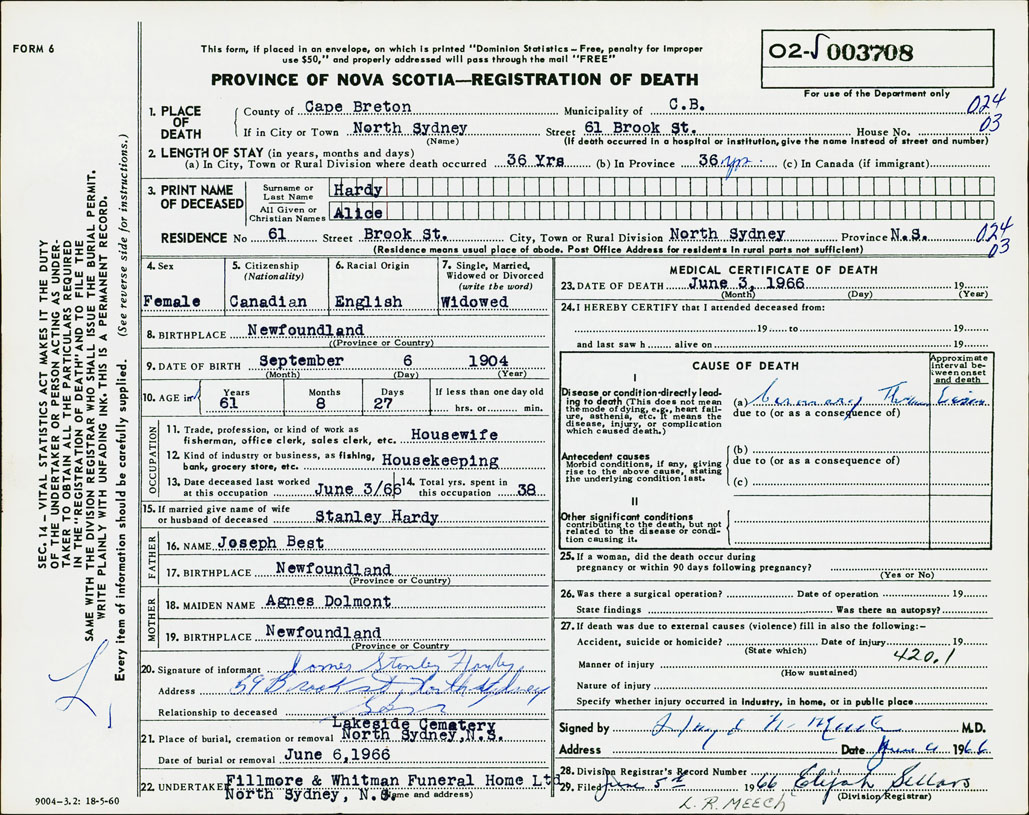 FORM 6
This form, if placed in an envelope, on which is printed "Dominion Statistics – Free, penalty for improper
use $50," and properly addressed will pass through the mail "FREE"
PROVINCE OF NOVA SCOTIA—REGISTRATION OF DEATH
02-003708
For use of the Department only
1. PLACE OF DEATH
County of Cape Breton Municipality of C.B. 024
If in City or Town North Sydney Street 61 Brook St. House No. 03
(Name) (If death occurred in a hospital or institution, give the name instead of street and number)
2. LENGTH OF STAY (in years, months and days)
(a) In City, Town or Rural Division where death occurred 36 Yrs (b) In Province 36 yrs. (c) In Canada (if immigrant)
3. PRINT NAME OF DECEASED
Surname or Last Name Hardy
All Given or Christian Names Alice
RESIDENCE No 61 Street Brook St. City, Town or Rural Division North Sydney Province N.S. 024
03
(Residence means usual place of abode. Post Office Address for residents in rural parts not sufficient)
4. Sex Female
5. Citizenship (Nationality) Canadian
6. Racial Origin English
7. Single, Married, Widowed or Divorced (write the word) Widowed
8. BIRTHPLACE Newfoundland
((Province or Country)
9. DATE OF BIRTH September 6 1904
(Month) (Day) (Year)
10. AGE in Years 61 Months 8 Days 27 If less than one day old hrs. or min.
OCCUPATION
11. Trade, profession, or kind of work as
fisherman, office clerk, sales clerk, etc. Housewife
12. Kind of industry or business, as fishing,
bank, grocery store, etc. Housekeeping
13. Date deceased last worked at this occupation June 3/66 14. Total yrs. spent in this occupation 38
15. If married give name of wife
or husband of deceased Stanley Hardy
FATHER
16. NAME Joseph Best
17. BIRTHPLACE Newfoundland
(Province or Country)
MOTHER
18. MAIDEN NAME Agnes Dolmont
19. BIRTHPLACE Newfoundland
(Province or Country)
20. Signature of informant James Stanley Hardy
Address 59 Brook st, North Sydney
Relationship to deceased Son
Lakeside Cemetery
21. Place of burial, cremation or removal North Sydney, N.S.
Date of burial or removal June 6,1966
22. UNDERTAKER Fillmore & Whitman Funeral Home Ltd
North Sydney, N.S. (Name and address)
MEDICAL CERTIFICATE OF DEATH
23. DATE OF DEATH June 3, 1966 19
(Month) (Day) (Year)
24. I HEREBY CERTIFY that I attended deceased from:
19 to 19
and last saw h alive on 19
CAUSE OF DEATH
Approximate interval between onset and death
I
Disease or condition directly leading to death (This does not mean the mode of dying, e.g., heart failure, asthenia, etc. It means the disease, injury, or complication which caused death.)
(a)
due to (or as a consequence of)
Antecedent causes
Morbid conditions, if any, giving rise to the above cause, stating the underlying condition last.
(b)
due to (or as a consequence of)
(c)
II
Other significant conditions
contributing to the death, but not related to the disease or condition causing it.
25. If a woman, did the death occur during
pregnancy or within 90 days following pregnancy?
(Yes or No)
26. Was there a surgical operation? Date of operation 19
State findings Was there an autopsy?
27. If death was due to external causes (violence) fill in also the following:–
Accident, suicide or homicide? Date of injury 19
(State which) 420.1
Manner of injury
(How sustained)
Nature of injury
Specify whether injury occurred in industry, in home, or in public place
Signed by M.D.
Address Date June 1966
28. Division Registrar's Record Number
29. Filed June 5th 1966 Elijah Sellars
(Division Registrar)
L. R. MEECH
SEC. 14 – VITAL STATISTICS ACT MAKES IT THE DUTY
OF THE UNDERTAKER OR PERSON ACTING AS UNDER-
TAKER TO OBTAIN ALL THE PARTICULARS REQUIRED
IN THE "REGISTRATION OF DEATH" AND TO FILE THE
SAME WITH THE DIVISION REGISTRAR WHO SHALL ISSUE THE BURIAL PERMIT.
WRITE PLAINLY WITH UNFADING INK. THIS IS A PERMANENT RECORD.
Every item of information should be carefully supplied. (See reverse side for instructions.)
9004-3.2: 18-5-60